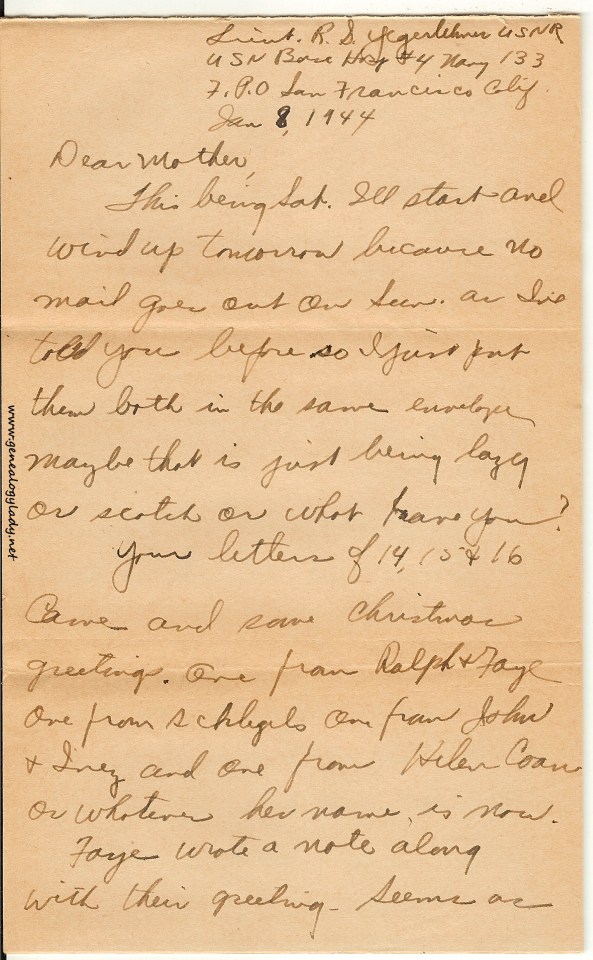 Lieut. R. S. Yegerlehner USNR
USN Base Hosp #4 Navy 133
F.P.O San Francisco Calif.
Jan 8, 1944
Dear Mother,
This being Sat. I'll start and
wind up tomorrow because no
mail goes out on Sun. as I've
told you before so I just put
them both in the same envelope
maybe that is just being lazy
or scotch or what have you?
Your letters of 14, 15 & 16
came and some Christmas
greetings. One from Ralph & Faye
One from Schlegels One from John
& Inez and one from Helen Coan
or whatever her name is now.
Faye wrote a note along
with their greeting - Seems as
www.genealogylady.net